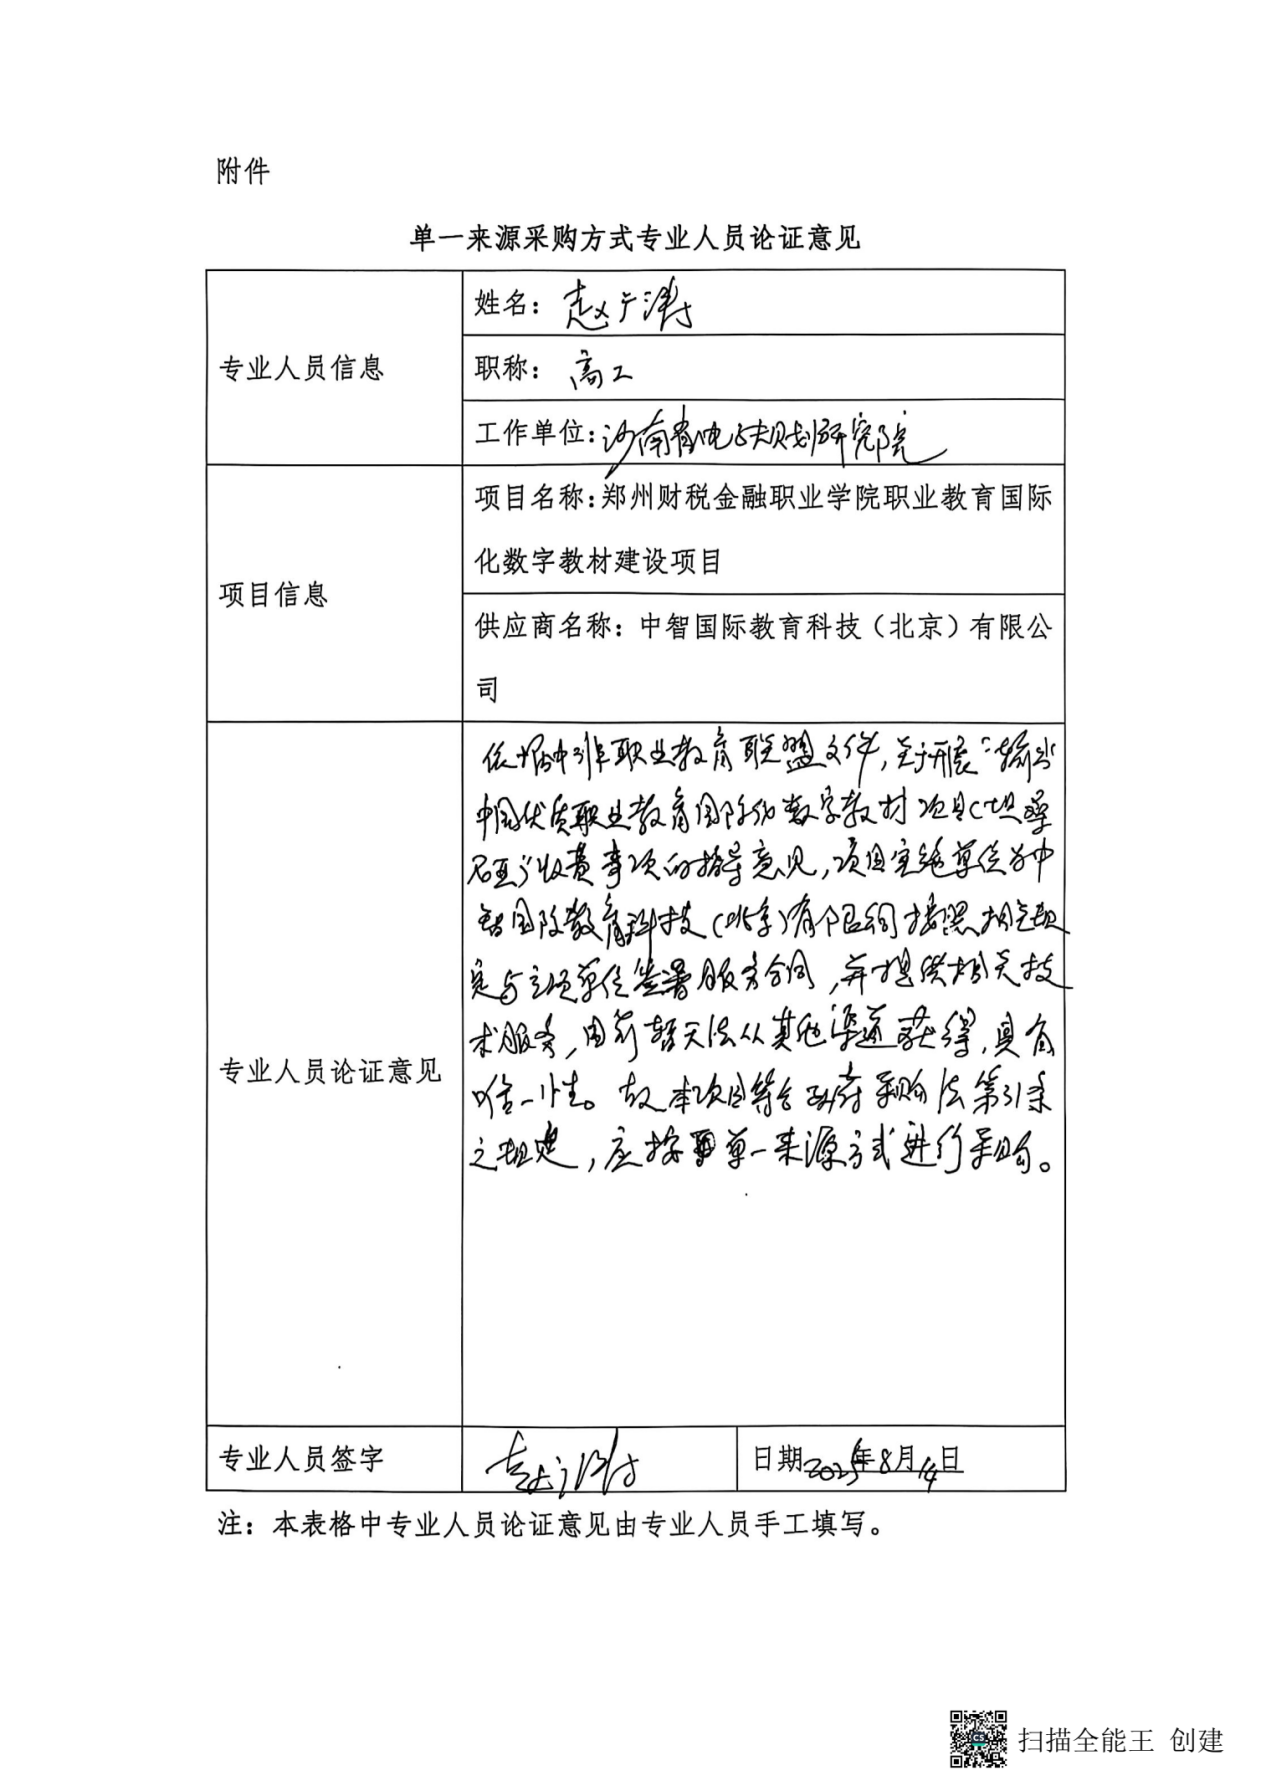 附件
单一来源采购方式专业人员论证意见
专业人员信息
姓名：赵广涛
职称：高工
工作单位：河南省电子规划研究院
项目信息
项目名称：郑州财税金融职业学院职业教育国际
化数字教材建设项目
供应商名称：中智国际教育科技（北京）有限公
司
专业人员论证意见
依据中非职业教育联盟文件，关于开展“输出
中国优质职业教育国际化数字教材项目（坦桑
尼亚）”收费事项的指导意见，项目实施单位为中
智国际教育科技（北京）有限公司按照相关规
定与立项单位签署服务合同，并提供相关技
术服务，目前暂无法从其他渠道获得，具有
唯一性。故本项目符合政府采购法第31条
之规定，应按单一来源方式进行采购。
专业人员签字
赵广涛
日期2025年8月14日
注：本表格中专业人员论证意见由专业人员手工填写。
扫描全能王 创建